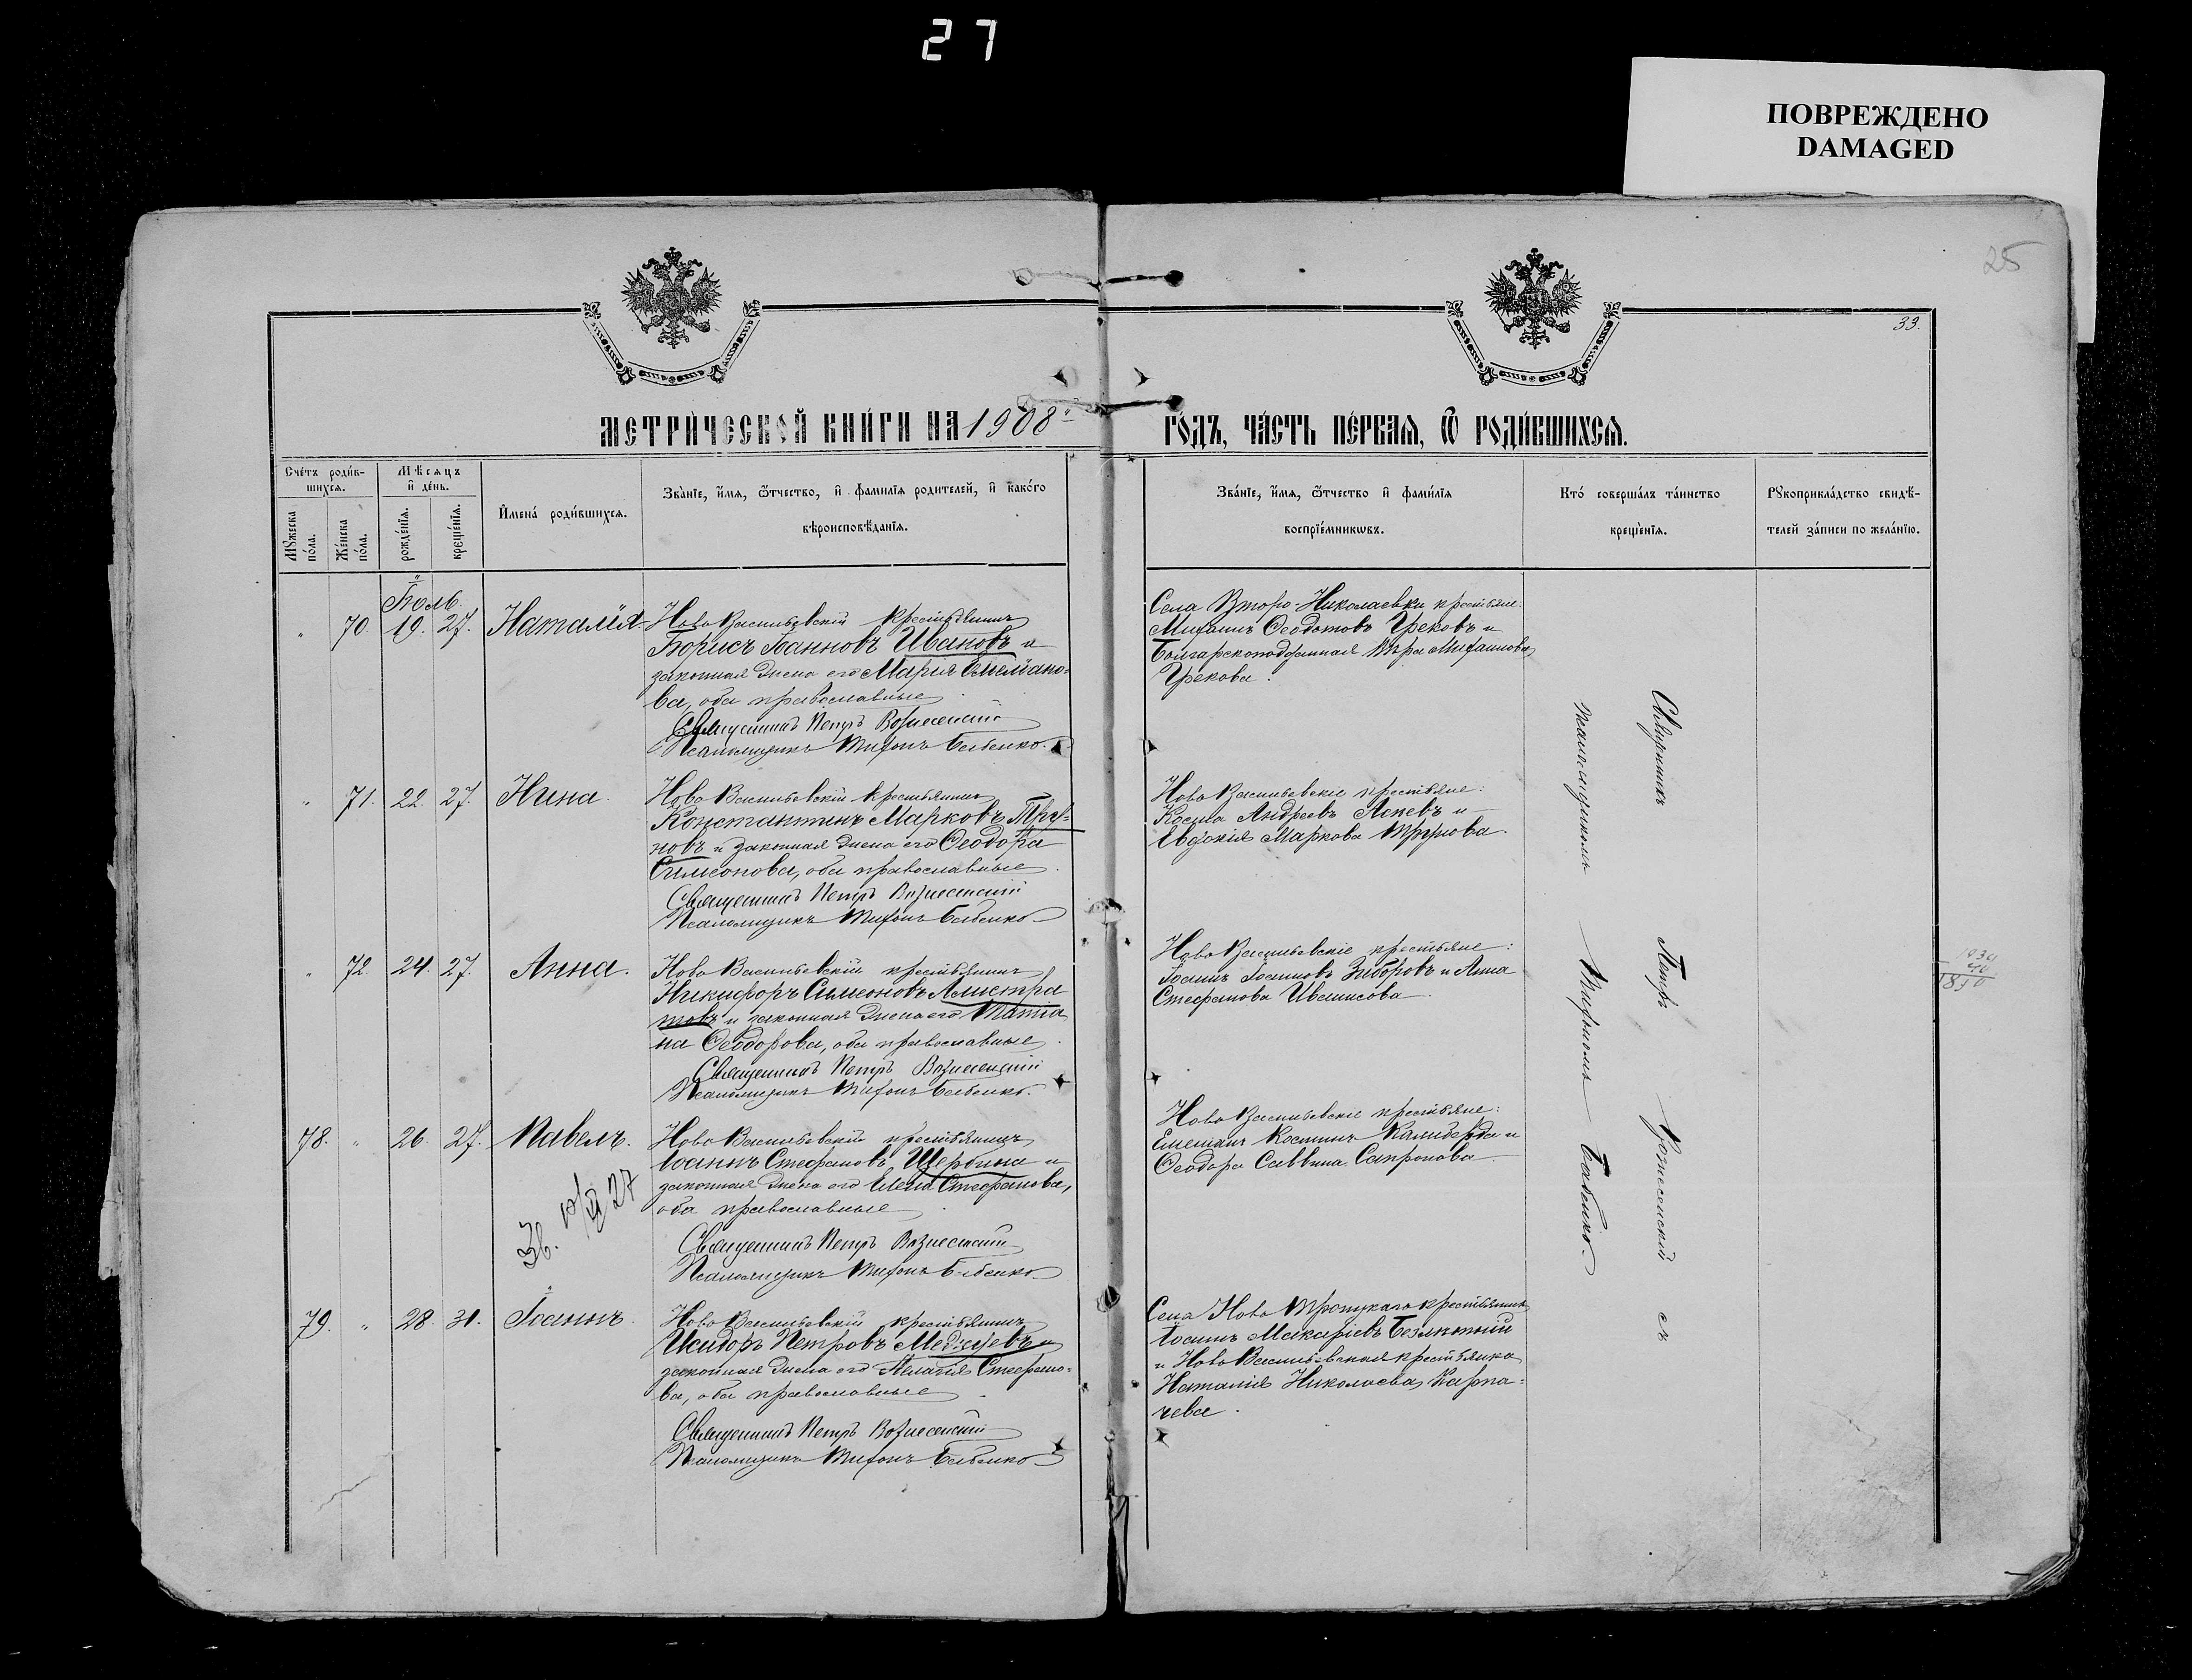 27
ПОВРЕЖДЕНО
DAMAGED
25
33.
МЕТРИЧЕСКОЙ КНИГИ НА 1908й
ГОДЪ, ЧАСТЬ ПЕРВАЯ, Ѿ РОДИВШИХСЯ.
Счетъ родив-
шихся.
Мужеска пола.
Женска пола.
Мѣсяцъ и день.
рожденія.
крещенія.
Имена родившихся.
Званіе, имя, ѿтчество, и фамилія родителей, и какого
вѣроисповѣданія.
Званіе, имя, ѿтчество и фамилія
воспріемниковъ.
Кто совершалъ таинство
крещенія.
Рукоприкладство свидѣ-
телей записи по желанію.
" 70. Іюль 19. 27. Наталія
НовоВасильевскій крестьянинъ
Борисъ Іоанновъ Ивановъ и
законная жена его Марія Емеліано-
ва, оба православные
Священникъ Петръ Вознесенскій
Псаломщикъ Тифонъ Бабенко.
Села Второ-Николаевки крестьяне:
Ѳеодотовъ Грековъ и
Болгарскоподданная Вѣра
Грекова.
" 71. 22. 27. Нина.
НовоВасильевскій крестьянинъ
Константинъ Марковъ Тру-
новъ и законная жена его Ѳеодора
Симеонова, оба православные
Священникъ Петръ Вознесенскій
Псаломщикъ Тифонъ Бабенко
НовоВасильевскіе крестьяне:
Косма Андреевъ и
Евдокія Маркова Трунова.
" 72. 24. 27. Анна.
НовоВасильевскій крестьянинъ
Никифоръ Симеоновъ Алистра
товъ и законная жена его Татіа
на Ѳеодорова, оба православные
Священникъ Петръ Вознесенскій
Псаломщикъ Тифонъ Бабенко.
НовоВасильевскіе крестьяне:
Іоаннъ Іоанновъ Зиборовъ и Анна
Стефанова
78. " 26. 27. Павелъ.
НовоВасильевскій крестьянинъ
Іоаннъ Стефановъ Щербина и
законная жена его Елена Стефанова,
оба православные
Священникъ Петръ Вознесенскій
Псаломщикъ Тифонъ Бабенко
НовоВасильевскіе крестьяне:
Калиберда и
Ѳеодора Саввина Сапронова
27
79. " 28. 31. Іоаннъ.
НовоВасильевскій крестьянинъ
Исидоръ Петровъ и
законная жена его Пелагія Стефано-
ва, оба православные
Священникъ Петръ Вознесенскій
Псаломщикъ Тифонъ Бабенко
Села Ново Троицкаго крестьянинъ
Іоаннъ Макаріевъ
и НовоВасильевская крестьянка
Наталія Николаева Карпа-
чева.
Священникъ Петръ Вознесенскій съ
псаломщикомъ Тифономъ Бабенко.